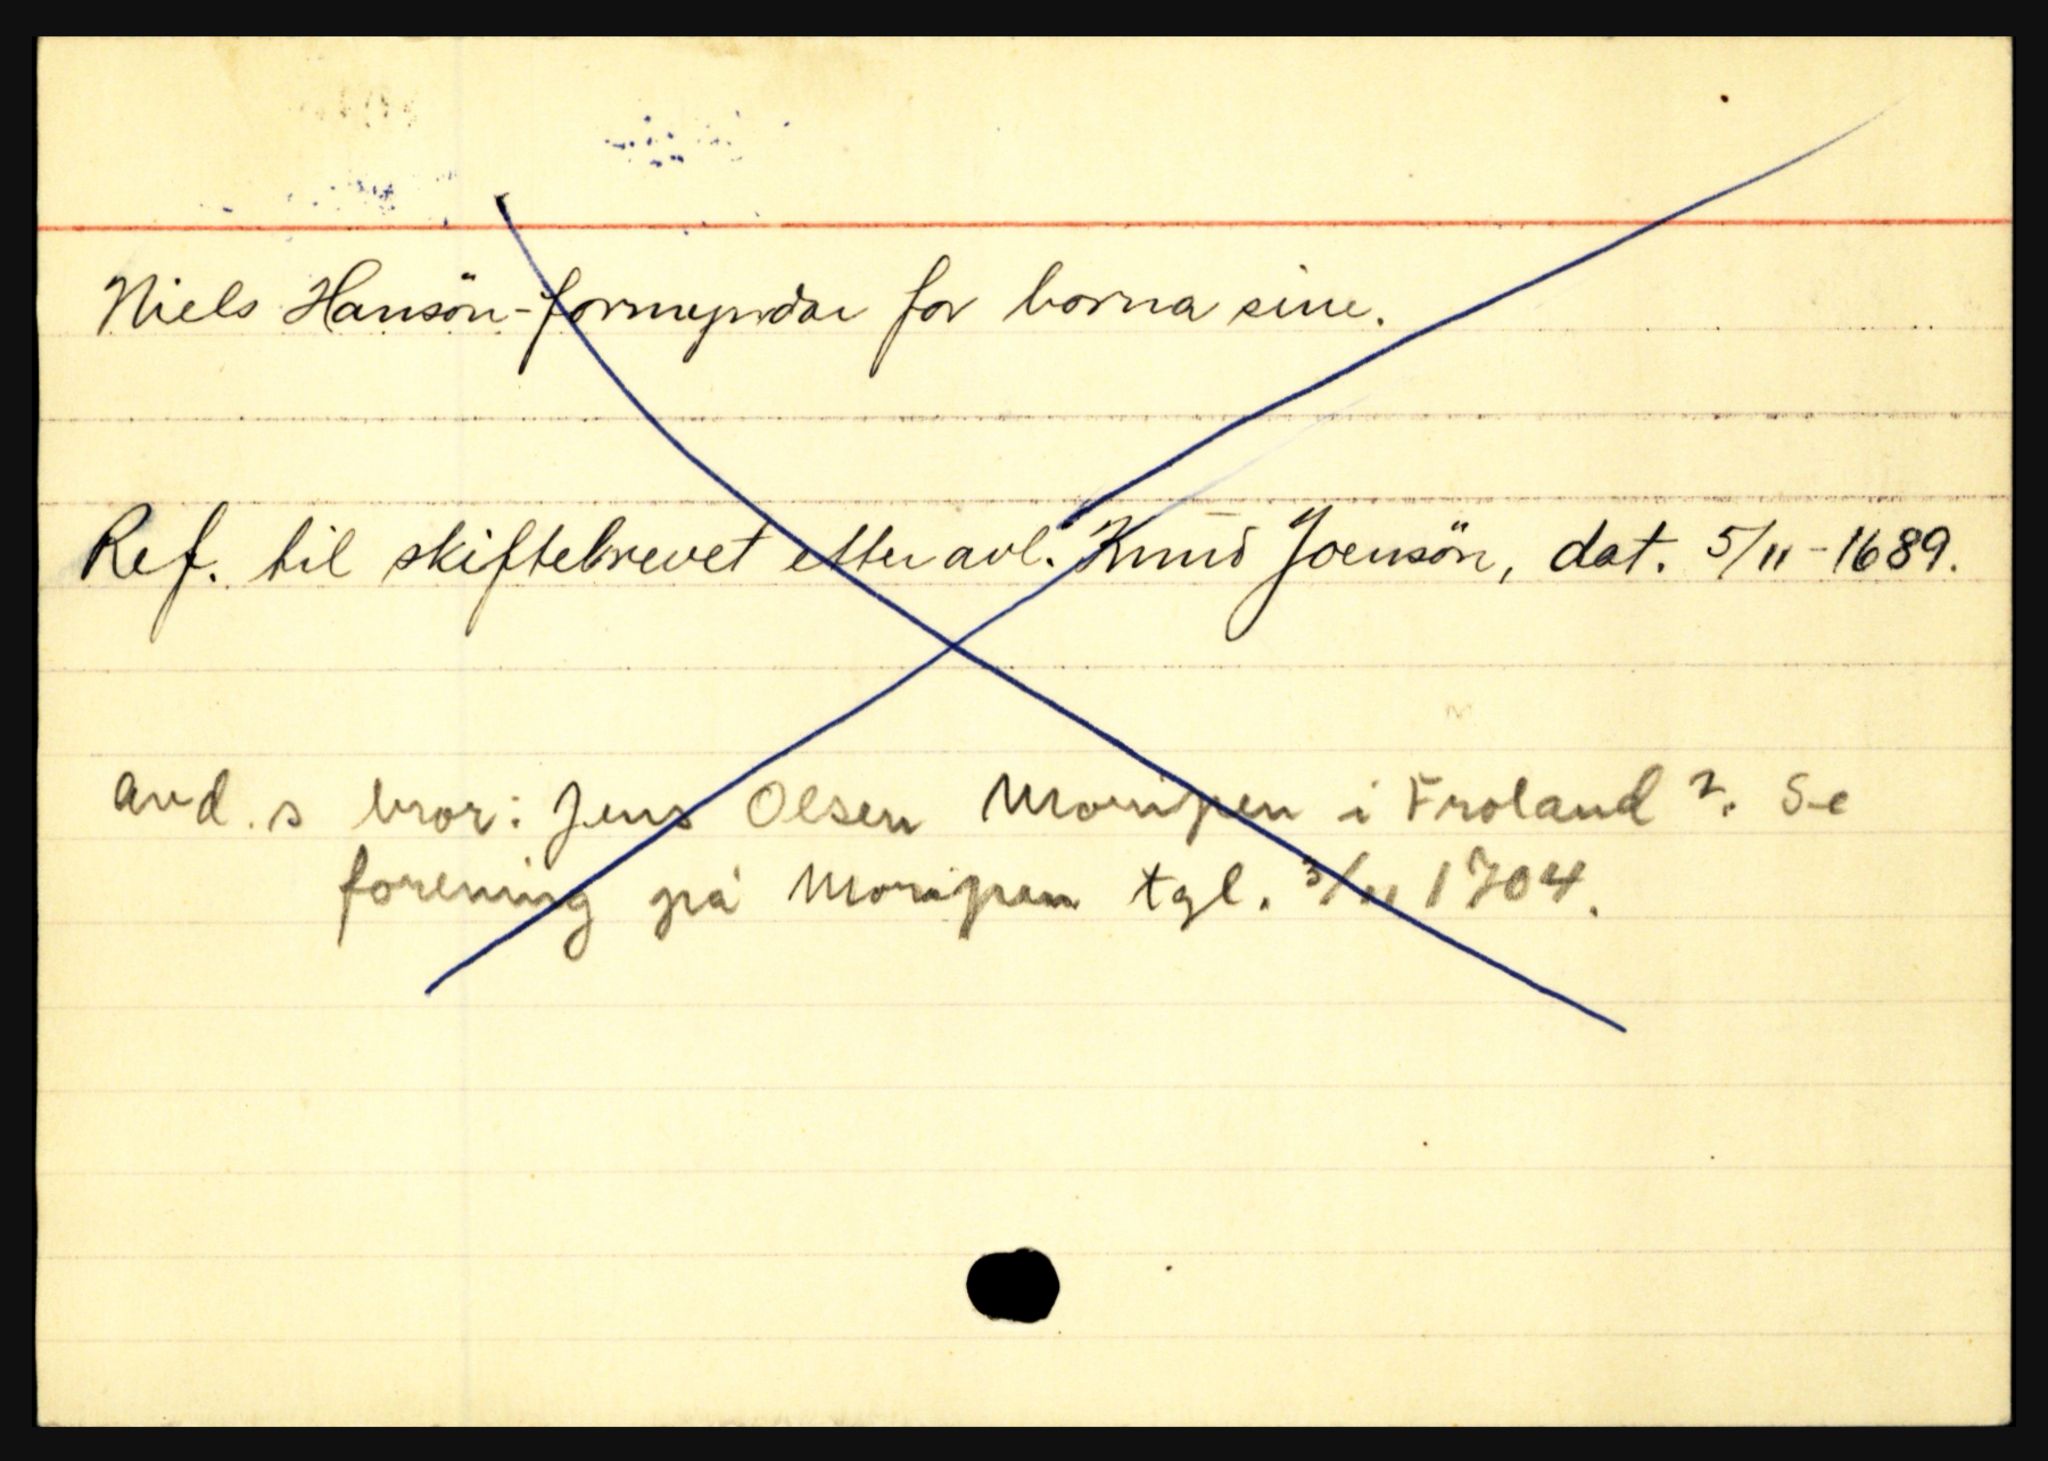 Niels Hansön - formyndar for borna sine.
Ref. til skiftebrevet etter avl. Knud Joensön, dat. 5/11 - 1689.
avd. s bror: Jens Olsen Moripen i Froland ?. Se
forening på Moripen tgl. 3/11 1704.